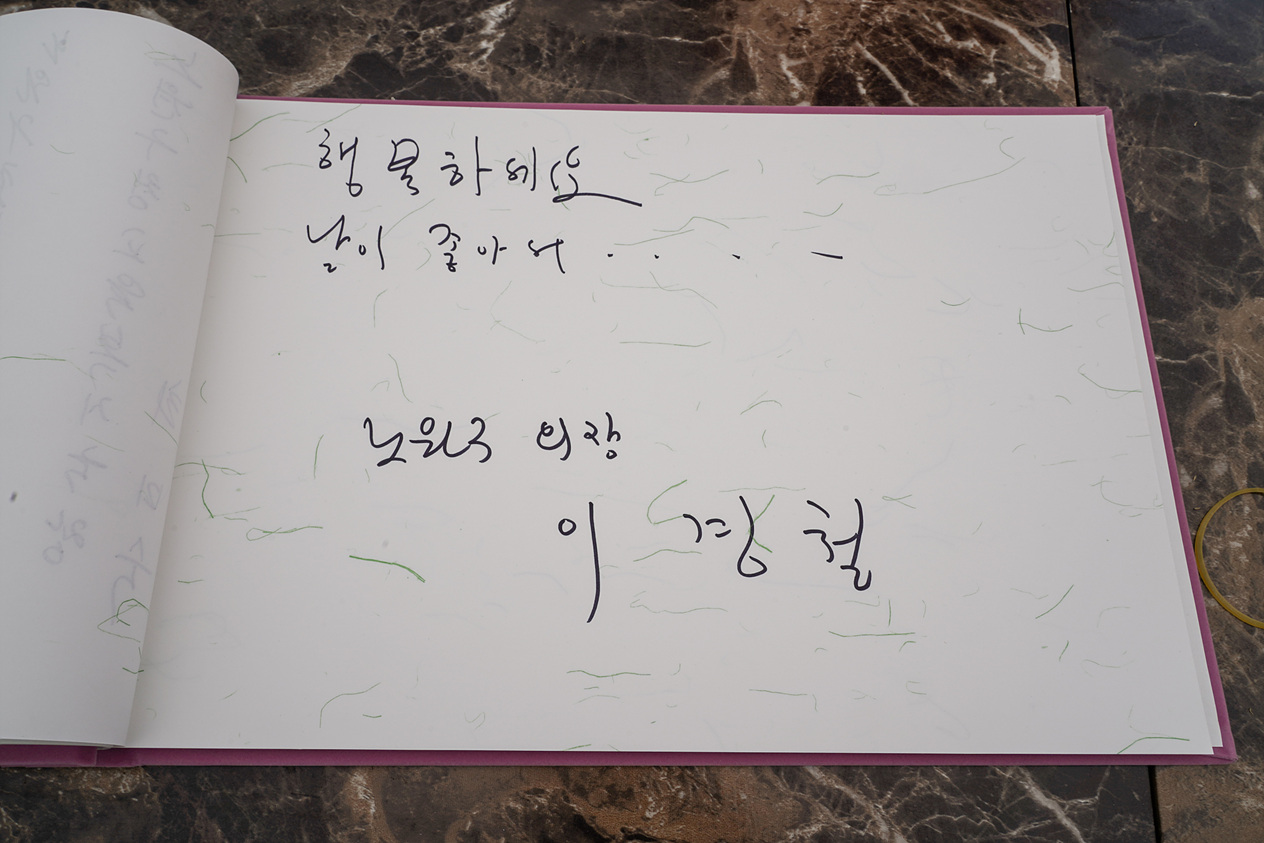 행복하세요
날이 좋아서 . . . -
노원구 의장
이경철